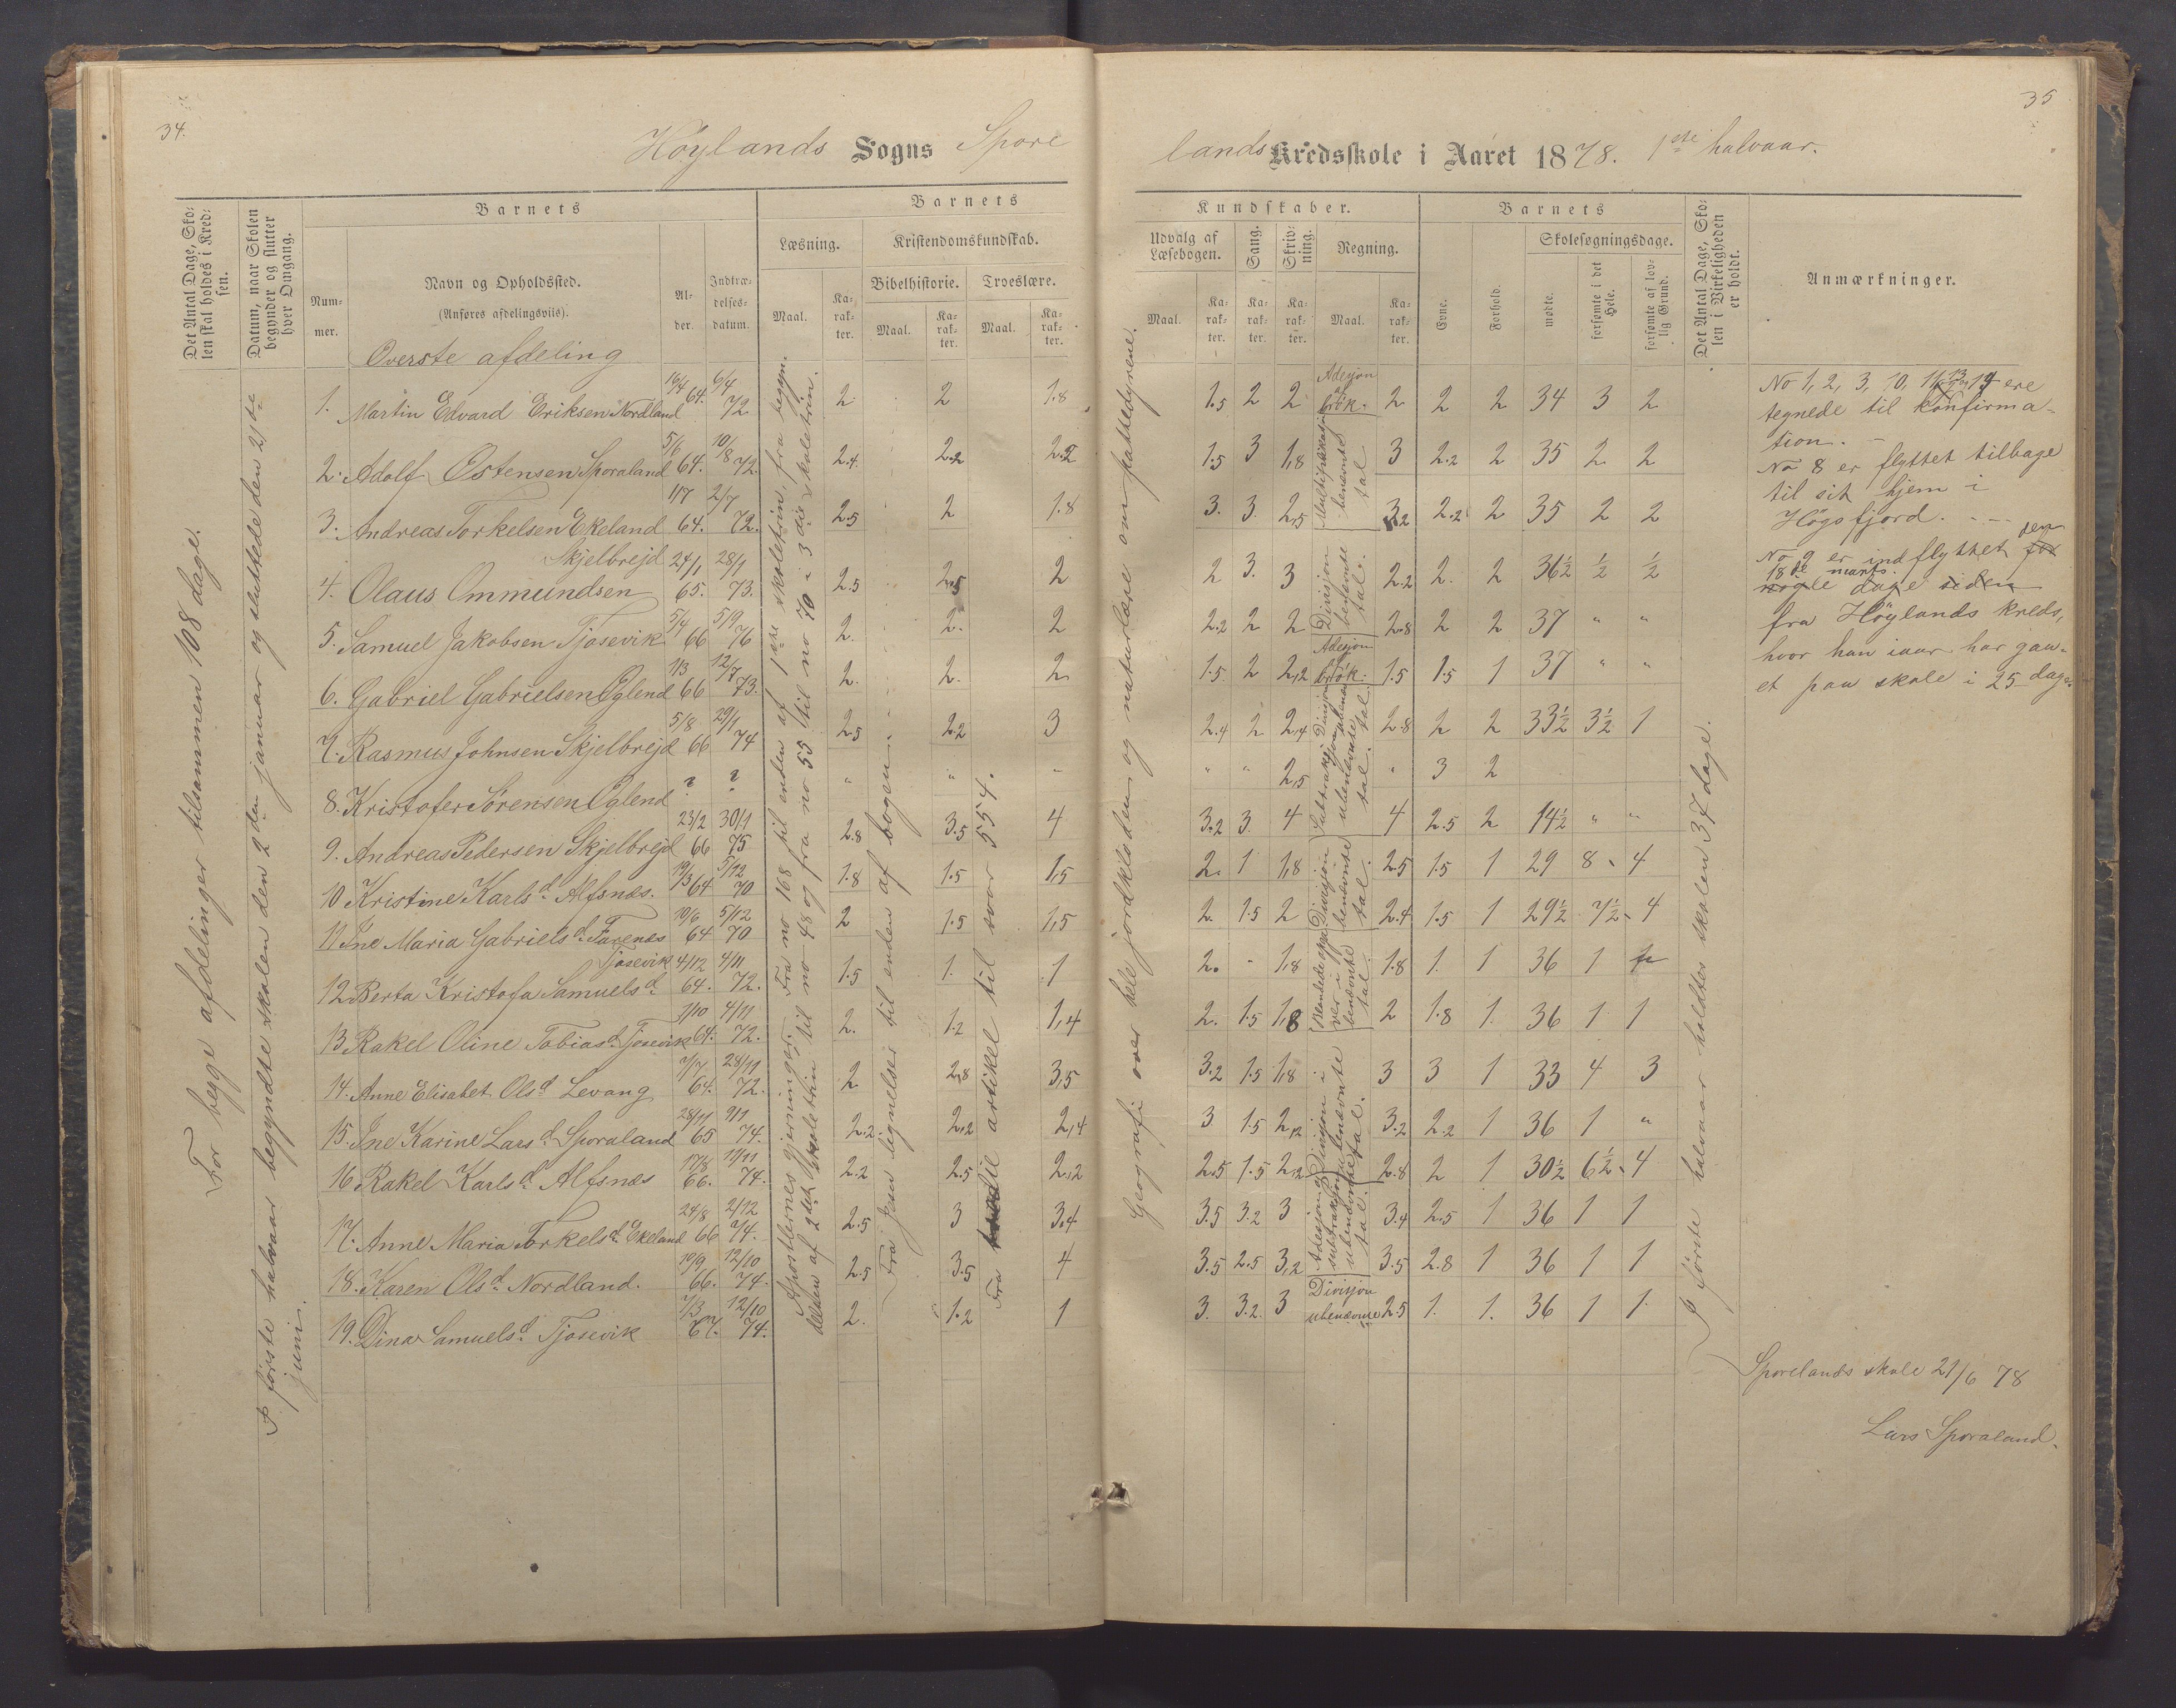 34.
35
Höylands Sogns Spore
lands Kredsskole i Aaret 1878. 1ste halvaar.
Det Antal Dage, Skolen skal holdes i Kredsen.
Datum, naar Skolen begynder og slutter hver Omgang.
Barnets
Nummer.
Navn og Opholdssted.
(Anføres afdelingsviis).
Alder.
Indtrædelsesdatum.
Barnets
Læsning.
Kristendomskundskab.
Bibelhistorie.
Troeslære.
Maal.
Karakter.
Maal.
Karakter.
Maal.
Karakter.
Kundskaber.
Udvalg af Læsebogen.
Sang.
Skrivning.
Regning.
Maal.
Karakter.
Karakter.
Karakter.
Maal.
Karakter.
Barnets
Evne.
Forhold.
Skolesøgningsdage.
mødte.
forsømte i det Hele.
forsømte af lovlig Grund.
Det Antal Dage, Skolen i Virkeligheden er holdt.
Anmærkninger.
Overste afdeling
For begge afdelinger tilsammen 108 dage.
I første halvaar begyndte skolen den 2den januar og sluttede den 21de juni.
1. Martin Edvard Eriksen Nordland 16/4 64. 6/4 72 2 2 1.8 1.5 2 2 2 2 2 34 3 2
2. Adolf Ostensen Sporaland 5/6 64. 10/8 72. 2.4 2.2 2.2 1.5 3 1,8 3 2.2 2 35 2 2
3. Andreas Torkelsen Ekeland 1/7 64. 2/7 72. 2.5 2 1.8 3. 3. 2,5 3,2 2.2 2 35 2 2
Skjelbrejd
4. Olaus Ommundsen 24/1 65. 28/1 73. 2.5 2.5 2 2 3. 3 2.2 2. 2 36½ ½ ½
5. Samuel Jakobsen Tjosevik 5/4 66 5/9 76 2. 2. 2 2.2 2 2 2.8 2 2 37 " "
6. Gabriel Gabrielsen Oglend 1/3 66 12/7 73. 2. 2. 2 1.5 2 2,2 1.5 1.5 1 37 " "
7. Rasmus Johnsen Skjelbrejd 5/8 66 29/1 74 2.5 2.2 3 2.4 2 2,4 2.8 2 2 33½ 3½ 1
8. Kristofer Sörensen Oglend ? ? " " " " " 2,5 " 3 2
9. Andreas Pedersen Skjelbrejd 23/2 66 30/1 75 2.8 3.5 4 3.2 3. 4 4 2.5 2 14½ " "
10 Kristine Karlsd. Alfsnes. 19/3 64 5/12 70 1.8 1.5 1,5 2. 1 1,8 2.5 1.5 1 29 8 4
11 Ine Maria Gabrielsd. Farenes 10/6 64 5/12 70 2 1.5 1,5 2. 1.5 2 2.4 1.5 1 29½ 7½ 4
Tjosevik
12 Berta Kristofa Samuelsd. 4/12 64. 4/11 72. 1.5 1. 1 2. " 1,8 1.8 1. 1 36 1
13 Rakel Oline Tobiasd. Tjosevik 1/10 64. 4/11 72. 2. 1.2 1,4 2. 1.5 1,8 2 1.8 1. 36 1 1
14. Anne Elisabet Olsd. Levang 7/7 64. 28/11 72. 2 2,8 3,5 3.2 1.5 1,8 3 3 1 33 4 3
15. Ine Karine Larsd. Sporaland 28/11 65 9/1 74. 2.2 2,2 2,4 3 1.5 2,2 3.2 2.2 1 36 1 "
16 Rakel Karlsd. Alfsnes 17/8 66. 11/11 74. 2.2 2.5 2,2 2.5 1.5 2,2 2.8 2 1 30½ 6½ 4
17. Anne Maria Torkelsd. Ekeland 24/8 66 2/12 74. 2.5 3 3,4 3.5 3.2 3 3.4 2.5 1 36 1 1
18. Karen Olsd. Nordland. 10/9 66. 12/10 74. 2.5 3.5 4 3.5 2.5 3,2 3.5 2.8 1 36 1 1
19. Dina Samuelsd. Tjosevik 7/3 67. 12/10 74. 2. 1.2 1 3. 3.2. 3 2.5 1. 1. 36 1 1
Apostlernes gjerninger. Fra no 168 til enden af 1ste skoletrin, fra begyndelsen af 2det skoletrin til no 48 og fra no 55 til no 70 i 3die skoletrin.
Fra Jesu lignelser til enden af bogen.
Fra artikel til svar 554.
Geografi over hele jordkloden og naturlære om pattedyrene.
Adesjon brök.
Multiplikasjon benevnte tal
Divisjon benevnte tal.
Adesjon brök.
Divisjon
Subtraksjon ubenevnte tal.
Divisjon benevnte tal.
Blandede opgaver i benevnte tal.
Divisjon i ubenevnte tal.
Adesjon og subtraksjon ubenevnte tal.
Divisjon ubenevnte
I første halvaar holdtes skolen 37 dage.
No 1, 2, 3, 10, 11, 13 og 14 ere
tegnede til konfirma-
tion. -
No 8 er flyttet tilbage
til sit hjem i
Högsfjord. ---
No 9 er indflyttet for den
18de marts
nogle dage siden
fra Höylands kreds,
hvor han iaar har gaa-
et paa skole i 25 dage.
Sporelands skole 21/6 78
Lars Sporaland.